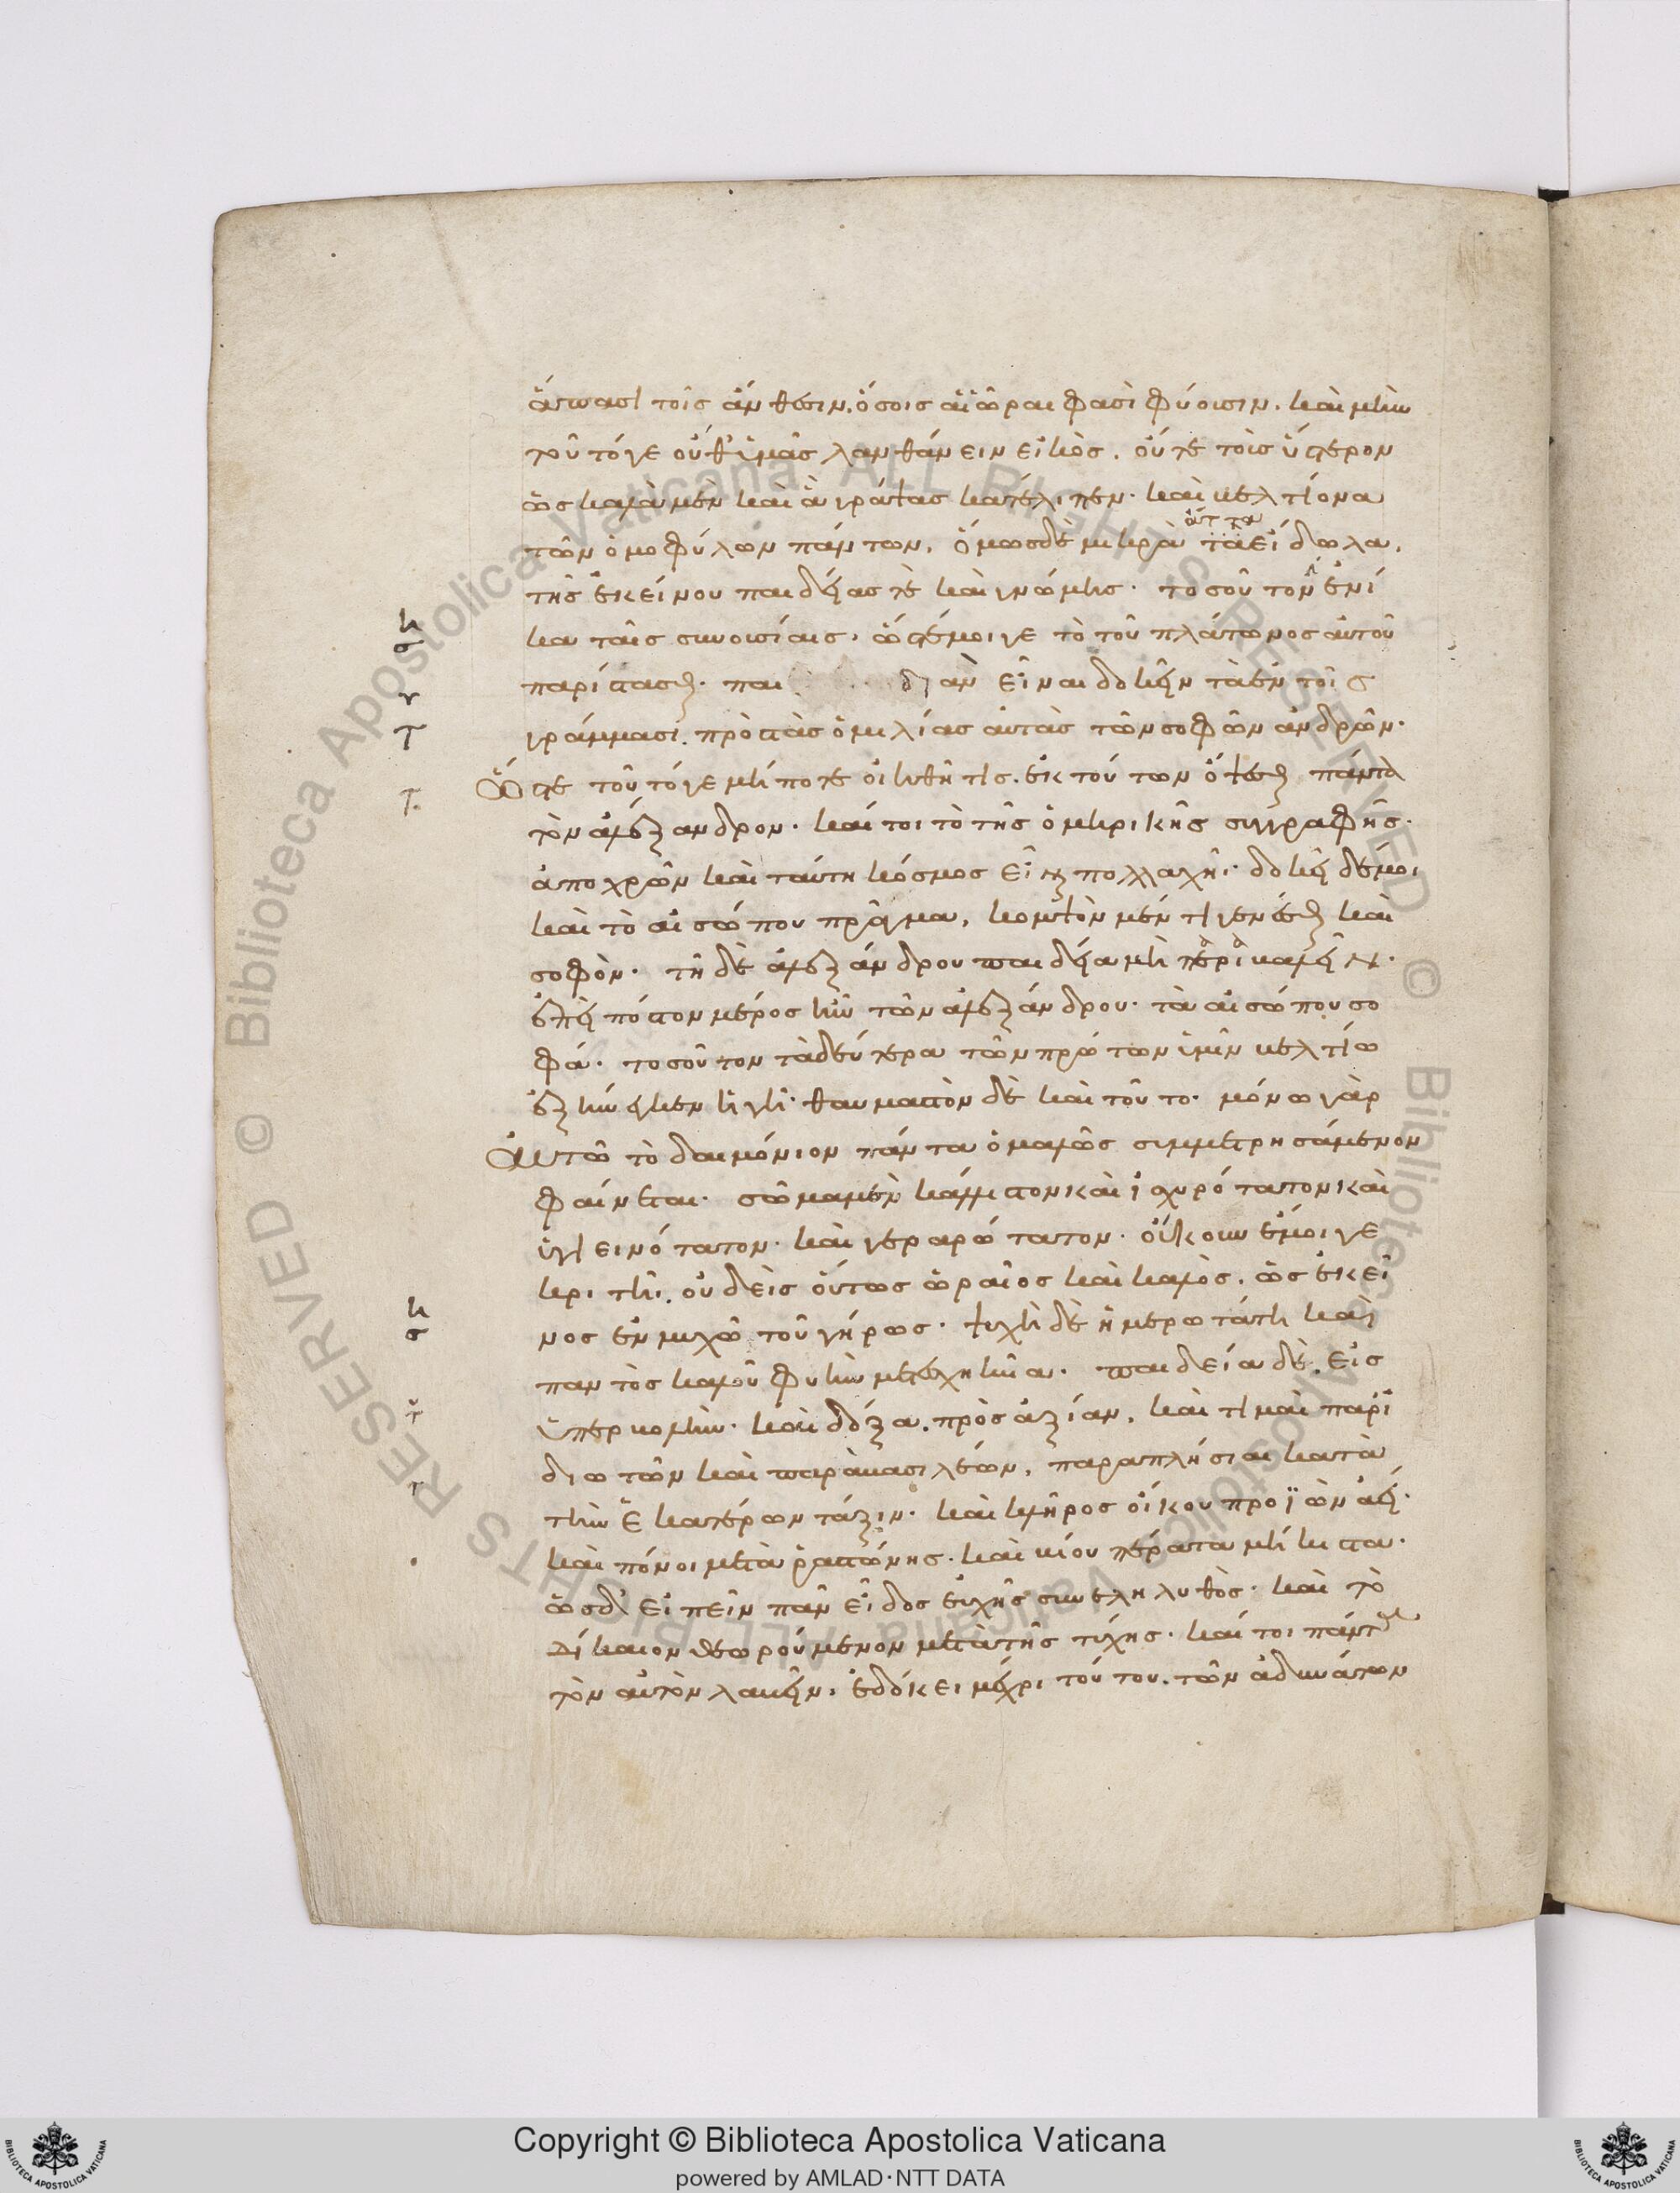 ἅπασι τοῖς ἄνθεσιν, ὅσοις αἱ ὧραι φασὶ φύουσιν. καὶ μὴν
τοῦτό γε οὔθ' ὑμᾶς λανθάνειν εἰκὸς, οὔτε τοῖς ὕστερον
ὡς καλὰ μὲν καὶ ἃ γράψας κατέλιπεν. καὶ βελτίονα
τῶν ὁμοφύλων πάντων, ὅμως δὲ μικρὰ τὰ εἴδωλα,
τῆς ἐκείνου παιδείας τε καὶ γνώμης. τοσοῦτον ἐνί
κα ταῖς συνουσίαις, ὥστέμοιγε τὸ τοῦ πλάτωνος αὐτοῦ
παρίσταται. παι διὰν εἶναι δοκεῖν τὰ ἐν τοῖς
γράμμασι πρὸς τὰς ὁμιλίας αὐτὰς τῶν σοφῶν ἀνδρῶν.
Ὥστε τοῦτό γε μήποτε οἰηθῆ τις. ἐκ τούτων ὄψεσθαι πάντα
τὸν ἀλέξανδρον. καίτοι τὸ τῆς ὁμηρικῆς συγγραφῆς.
ἀποχρῶν καὶ ταύτη κόσμος εἶναι πολλαχῆ. δοκεῖ δέ μοι
καὶ τὸ αἰσώπου πρᾶγμα, κομψὸν μέν τι γενέσθαι καὶ
σοφὸν. τῆ δὲ ἀλεξάνδρου παιδεία μὴ παραβαλεῖν.
ἐλπει πόστον μέρος ἦν τῶν ἀλεξάνδρου. τὰ αἰσώπου σο
φά. τοσοῦτον τὰ δεύτερα τῶν πρώτων ὑμῖν βελτίω
ἐξήνεγκεν ἡ γῆ. θαυμαστὸν δὲ καὶ τοῦτο. μόνω γὰρ
Αὐτῶ τὸ δαιμόνιον πάντα ὁμαλῶς συμμετρησάμενον
φαίνεται. σῶμα μὲν κάλλιστον καὶ ἰσχυρότατον καὶ
ὑγιεινότατον. καὶ γεραρώτατον. οὔκουν ἐμοιγε
κριτῆ. οὐδεὶς οὕτως ὡραῖος καὶ καλὸς, ὡς ἐκεῖ
νος ἐν μυχῶ τοῦ γήρως. ψυχὴ δὲ ἡμερωτάτη καὶ
παντὸς καλοῦ φυλὴν μετεσχηκῦα. παιδεία δὲ. εἰς
ὑπερβολὴν. καὶ δόξα. πρὸς ἀξίαν, καὶ τιμαὶ παρ' ἰ
διωτῶν καὶ παρὰ βασιλέων, παραπλήσιαι κατὰ
τὴν ἑκατέρων τάξιν. καὶ κλῆρος οἴκου προϊὼν ἀεί.
καὶ πόνοι μετὰ ῥαστώνης. καὶ βίου πέρατα μήκιστα.
ὡς δ' εἰπεῖν πᾶν εἶδος εὐχῆς συνεληλυθὸς. καὶ τὸ
Δίκαιον θεωρούμενον μετὰ τῆς τύχης. καίτοι πάντα
τὸν αὐτὸν λαβεῖν, ἐδόκει μέχρι τούτου. τῶν ἀδυνάτων
Copyright © Biblioteca Apostolica Vaticana
powered by AMLAD·NTT DATA